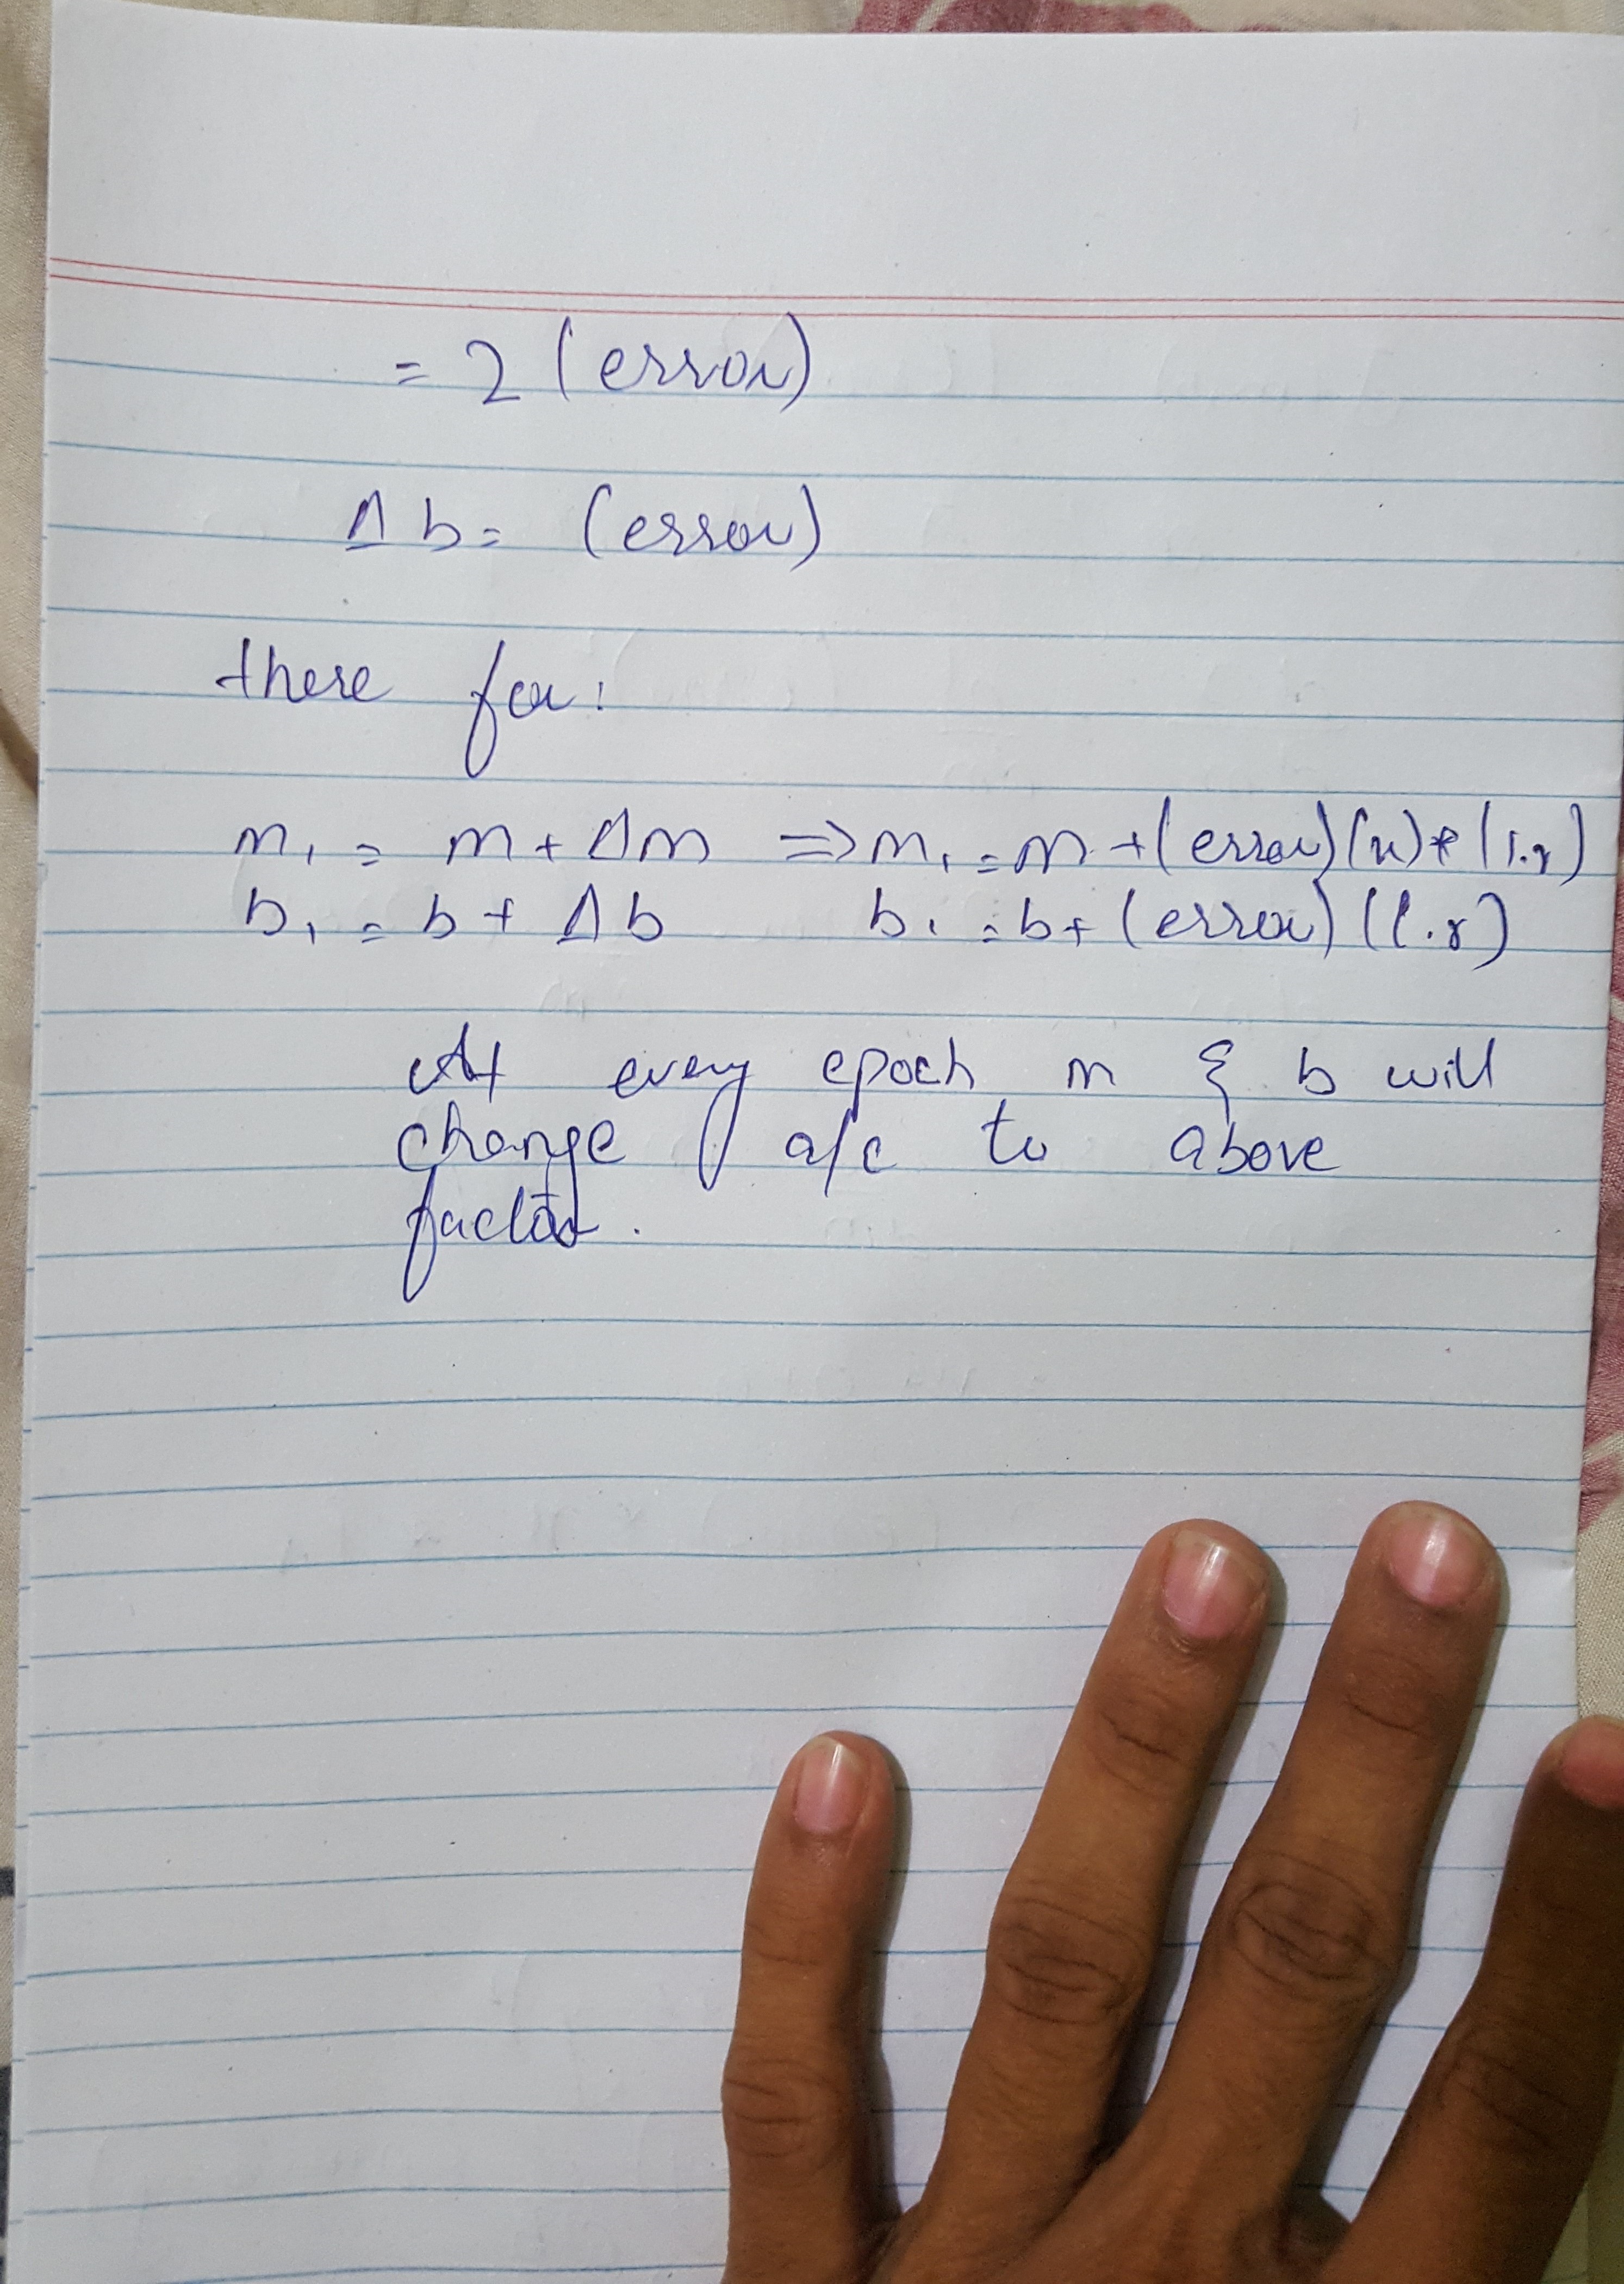 = 2 (error)
Δb = (error)
there for:
m₁ = m + Δm => m₁ = m + (error)(x) * (l.r)
b₁ = b + Δb b₁ = b + (error)(l.r)
At every epoch m & b will
change a/c to above
factor.